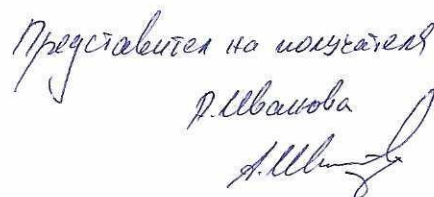 Представител на получателя
Д. Иванова